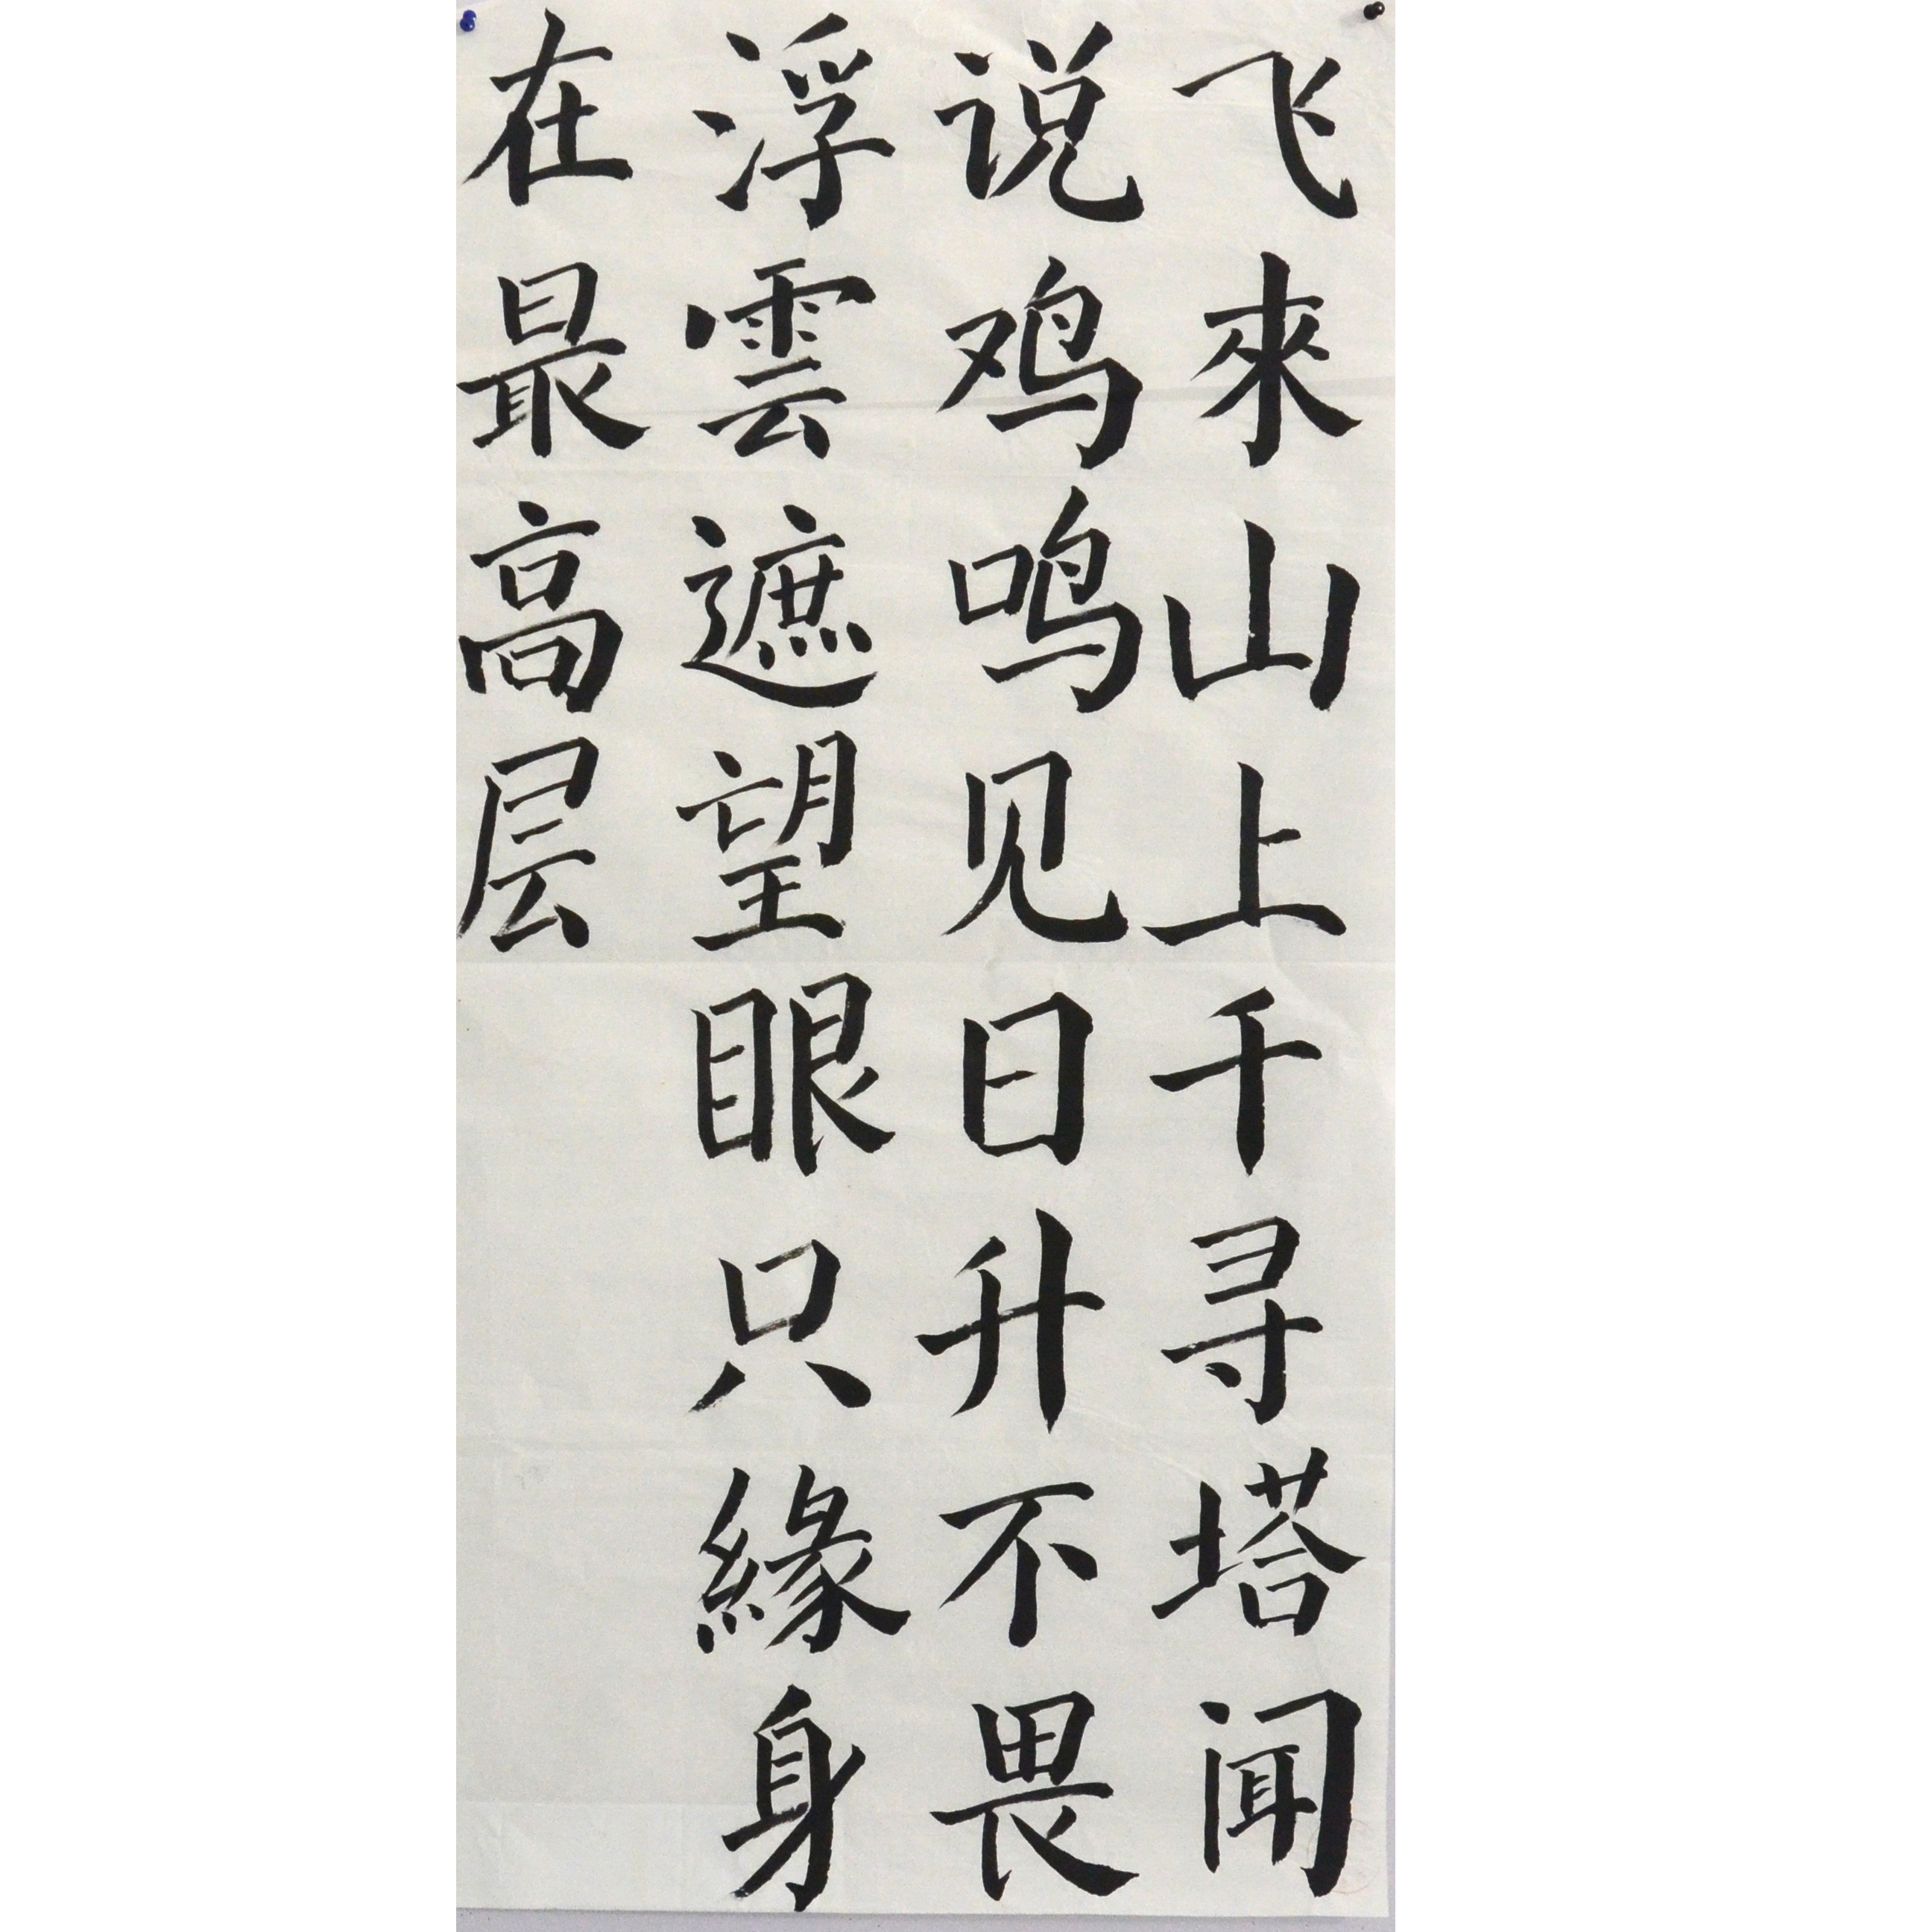 飞來山上千寻塔闻
说鸡鸣见日升不畏
浮雲遮望眼只緣身
在最高层